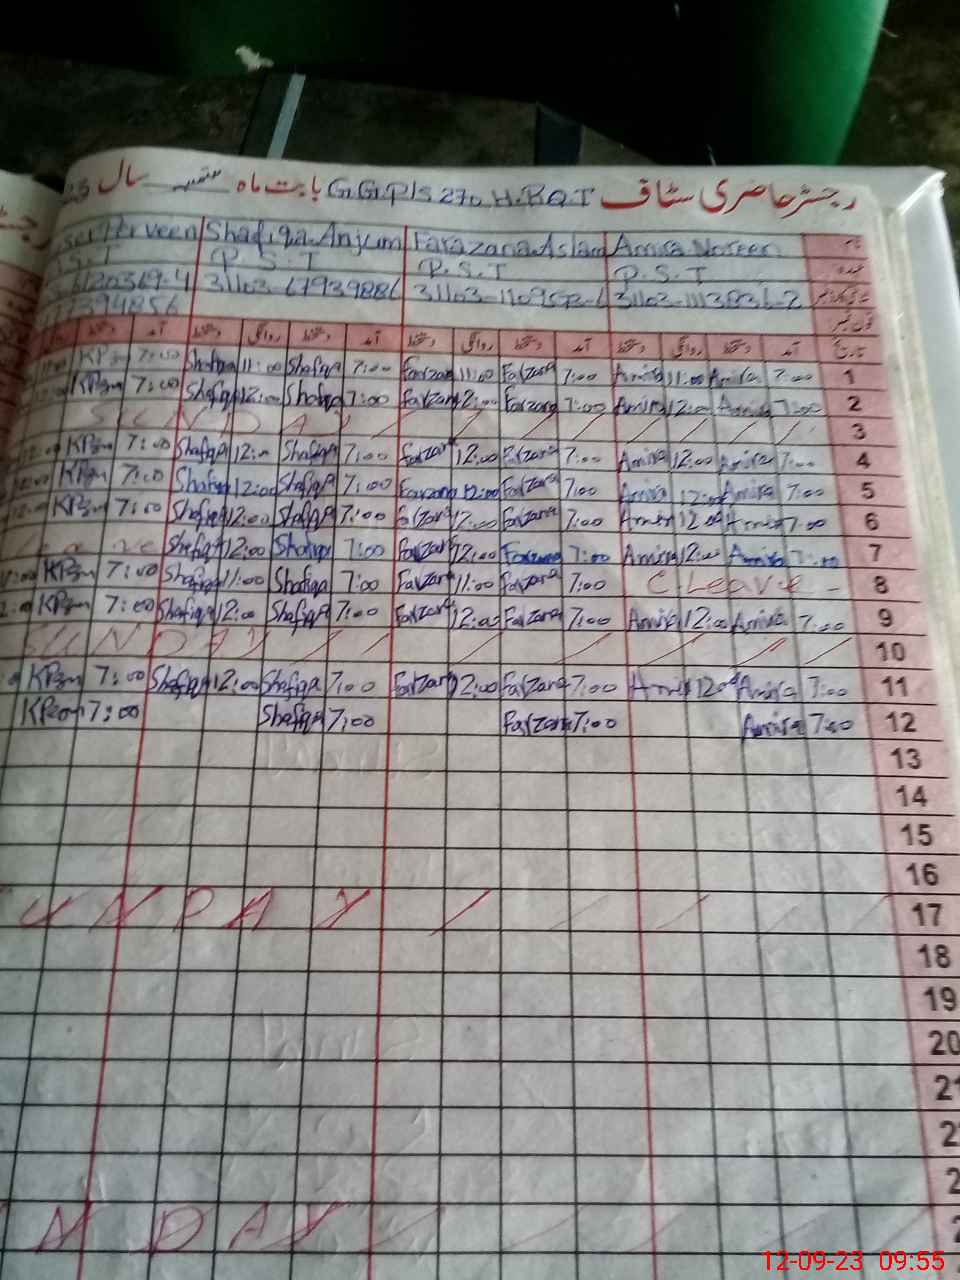 رجسٹر حاضری سٹاف G.G.P/S 270 H.R Q.T بابت ماہ ستمبر سال 23
Parveen Shafiqa Anjum Farazana Aslam Amira Noreen نام
S.T P.S.T P.S.T P.S.T عہدہ
20369-4 31103-6793988 31103-110952-6 31103-1113836-2
7394856 فون نمبر
آمد دستخط روانگی دستخط آمد دستخط روانگی دستخط آمد دستخط روانگی دستخط آمد تاریخ
7:00 Shafiqa 11:00 Shafiqa 7:00 Farzana 11:00 Farzana 7:00 Amira 11:00 Amira 7:00 1
7:00 Shafiqa 12:00 Shafiqa 7:00 Farzana 12:00 Farzana 7:00 Amira 12:00 Amira 7:00 2
SUNDAY 3
7:00 Shafiqa 12:00 Shafiqa 7:00 Farzana 12:00 Farzana 7:00 Amira 12:00 Amira 7:00 4
7:00 Shafiqa 12:00 Shafiqa 7:00 Farzana 12:00 Farzana 7:00 Amira 12:00 Amira 7:00 5
7:00 Shafiqa 12:00 Shafiqa 7:00 Farzana 12:00 Farzana 7:00 Amira 12:00 Amira 7:00 6
Shafiqa 12:00 Shafiqa 7:00 Farzana 12:00 Farzana 7:00 Amira 12:00 Amira 7:00 7
7:00 Shafiqa 11:00 Shafiqa 7:00 Farzana 11:00 Farzana 7:00 C.Leave - 8
7:00 Shafiqa 12:00 Shafiqa 7:00 Farzana 12:00 Farzana 7:00 Amira 12:00 Amira 7:00 9
SUNDAY 10
7:00 Shafiqa 12:00 Shafiqa 7:00 Farzana 12:00 Farzana 7:00 Amira 12:00 Amira 7:00 11
7:00 Shafiqa 7:00 Farzana 7:00 Amira 7:00 12
13
14
15
16
UNDAY 17
18
19
20
21
2
2
N DAY 2
12-09-23 09:55